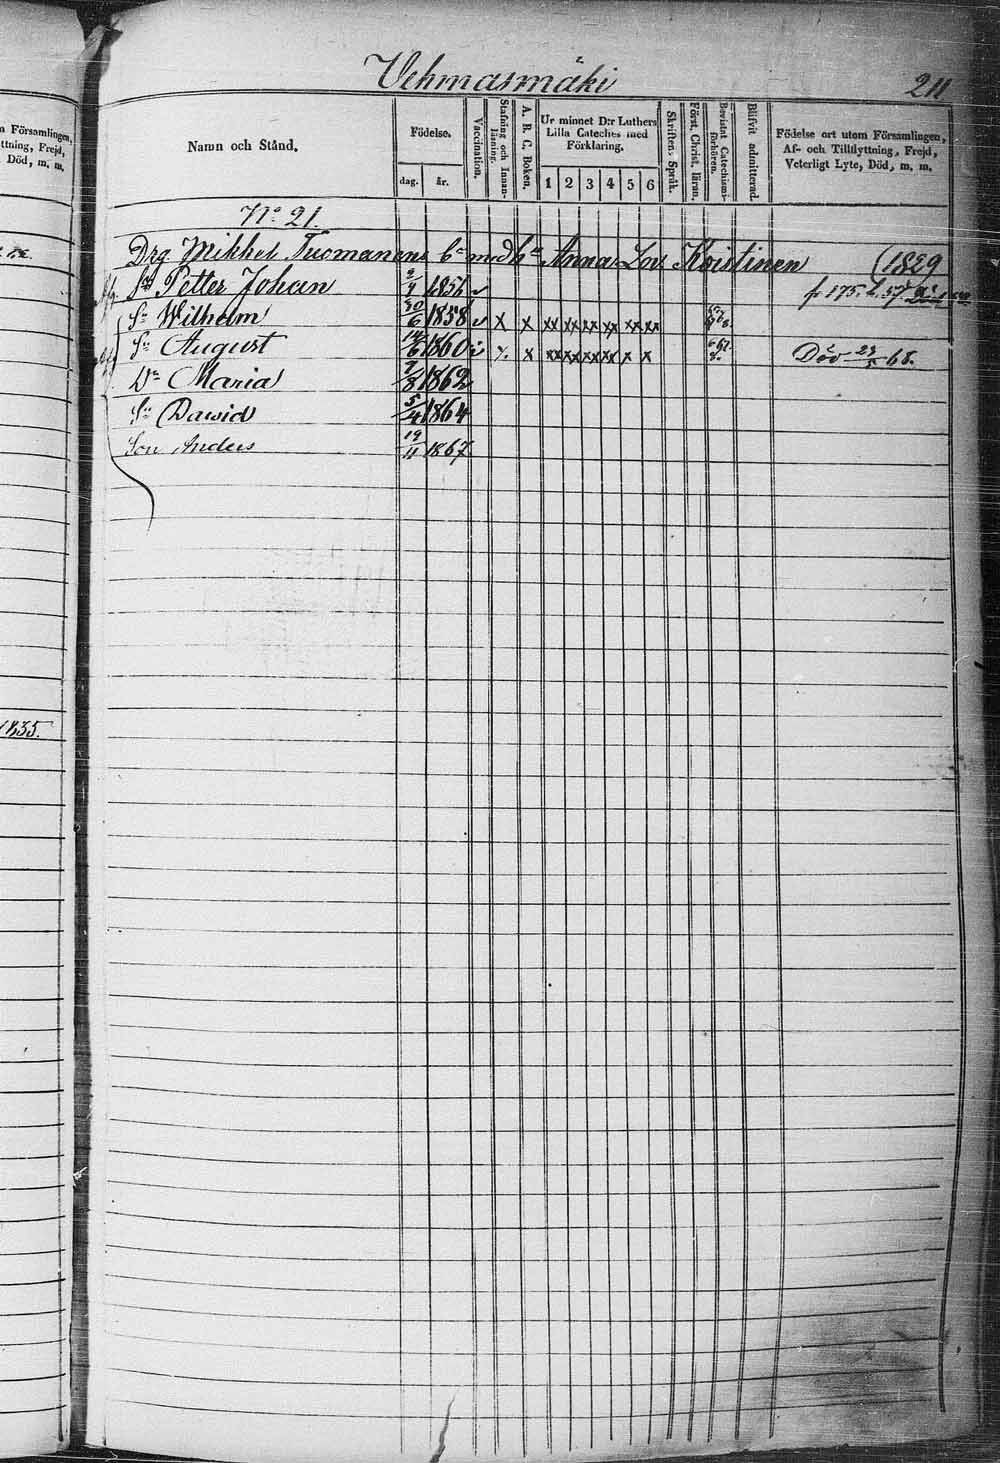 n Församlingen,
ttning, Frejd,
Död, m. m.
1835.
Vehmasmäki
211
Namn och Stånd.
Födelse.
dag.
år.
Vaccination.
Stafning och Innan-läsning.
A. B. C. Boken.
Ur minnet D:r Luthers
Lilla Cateches med
Förklaring.
1 2 3 4 5 6
Skriften. Språk.
Först. Christ. läran.
Bevistat Catechismi-förhören.
Blifvit admitterad.
Födelse ort utom Församlingen,
Af- och Tillflyttning, Frejd,
Veterligt Lyte, Död, m. m.
No 21.
Drg Mikkel Tuomanens Ca med ha Anna Lov. Koistinen (1829
Sn Petter Johan 1856 v fr 175. h. 57
Sn Wilhelm 30/6 1858 v x x xx xx xx xx xx xx
Sn August 14/6 1860 x xx xx xx xx x x Död 23/5 68.
Dr Maria 7/8 1862
Sn Dawid 5/4 1864
Son Anders 19/11 1867